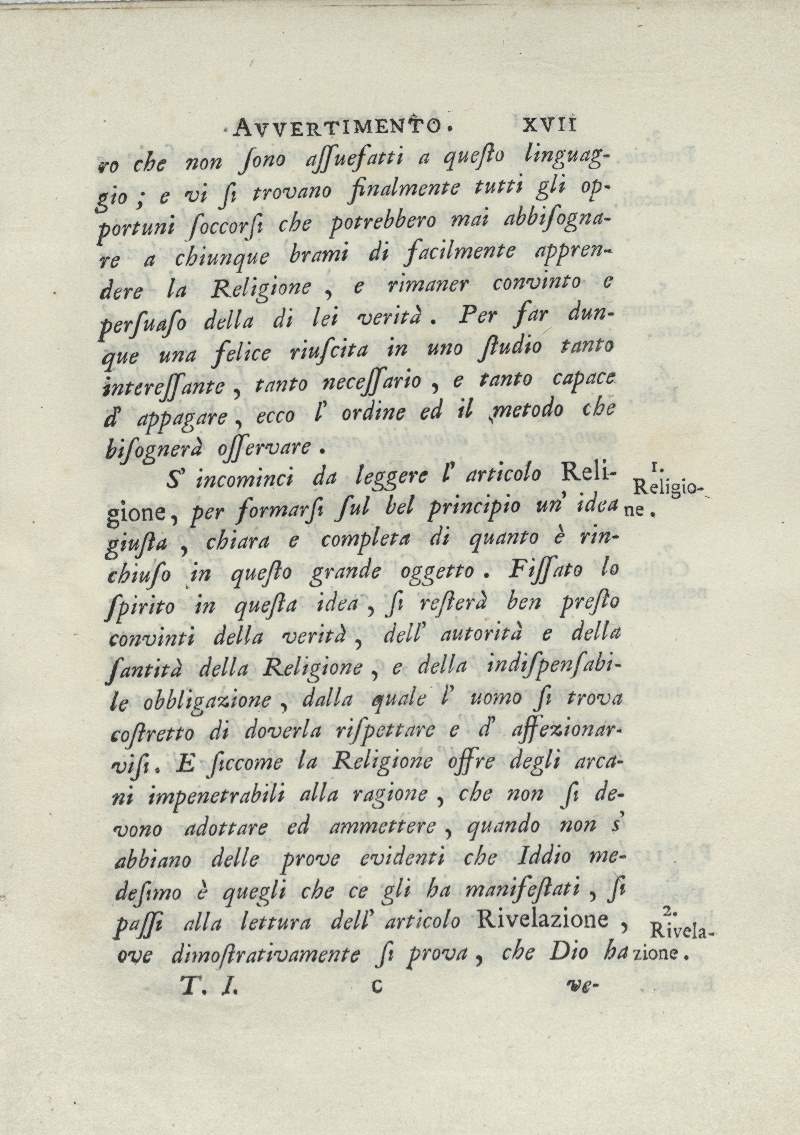 AVVERTIMENTO. XVII
ro che non ſono aſſuefatti a queſto linguag-
gio; e vi ſi trovano finalmente tutti gli op-
portuni ſoccorſi che potrebbero mai abbiſogna-
re a chiunque brami di facilmente appren-
dere la Religione, e rimaner convinto e
perſuaſo della di lei verità. Per far dun-
que una felice riuſcita in uno ſtudio tanto
intereſſante, tanto neceſſario, e tanto capace
d' appagare, ecco l' ordine ed il metodo che
biſognerà oſſervare.
S' incominci da leggere l' articolo Reli-
gione, per formarſi ſul bel principio un' idea
giuſta, chiara e completa di quanto è rin-
chiuſo in queſto grande oggetto. Fiſſato lo
ſpirito in queſta idea, ſi reſterà ben preſto
convinti della verità, dell' autorità e della
ſantità della Religione, e della indiſpenſabi-
le obbligazione, dalla quale l' uomo ſi trova
coſtretto di doverla riſpettare e d' affezionar-
viſi. E ſiccome la Religione offre degli arca-
ni impenetrabili alla ragione, che non ſi de-
vono adottare ed ammettere, quando non s'
abbiano delle prove evidenti che Iddio me-
deſimo è quegli che ce gli ha manifeſtati, ſi
paſſi alla lettura dell' articolo Rivelazione,
ove dimoſtrativamente ſi prova, che Dio ha
T. I. C ve-
1.
Religio-
ne.
2.
Rivela-
zione.